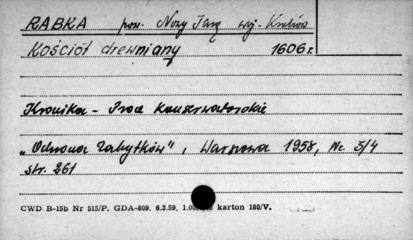 RABKA pow. Nowy Targ woj. Kraków
Kościół drewniany 1606 r.
Kronika - Prace konserwatorskie
"Ochrona Zabytków", Warszawa 1958, Nr. 3/4
str. 261
CWD B-15b Nr 515/P. GDA-809. 6.3.59, karton 180/V.